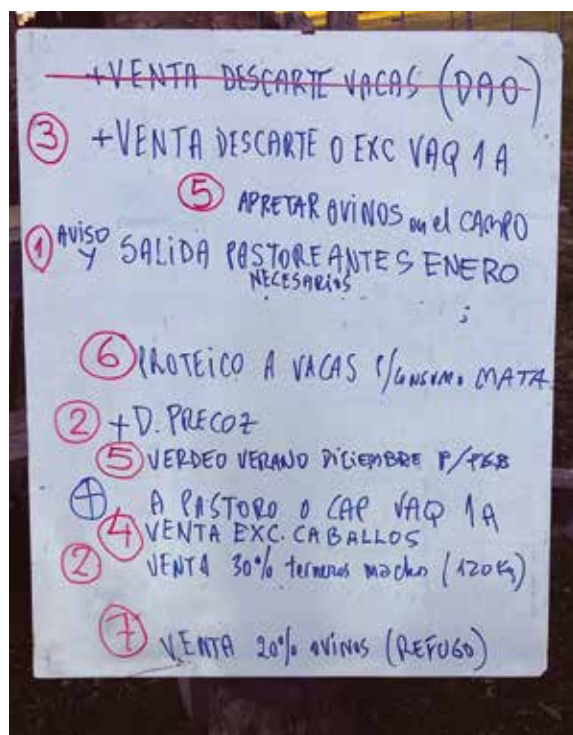 +VENTA DESCARTE VACAS (DAO)
3 +VENTA DESCARTE O EXC VAQ 1A
5 APRETAR OVINOS en el CAMPO
1 AVISO Y SALIDA PASTOREANTES ENERO
NECESARIOS
6 PROTEICO A VACAS P/CONSUMO MATA
2 +D. PRECOZ
5 VERDEO VERANO DICIEMBRE P/
+ A PASTORO O CAP VAQ 1A
4 VENTA EXC. CABALLOS
2 VENTA 30% terneros machos (120Kg)
7 VENTA 20% OVINOS (REFUGO)